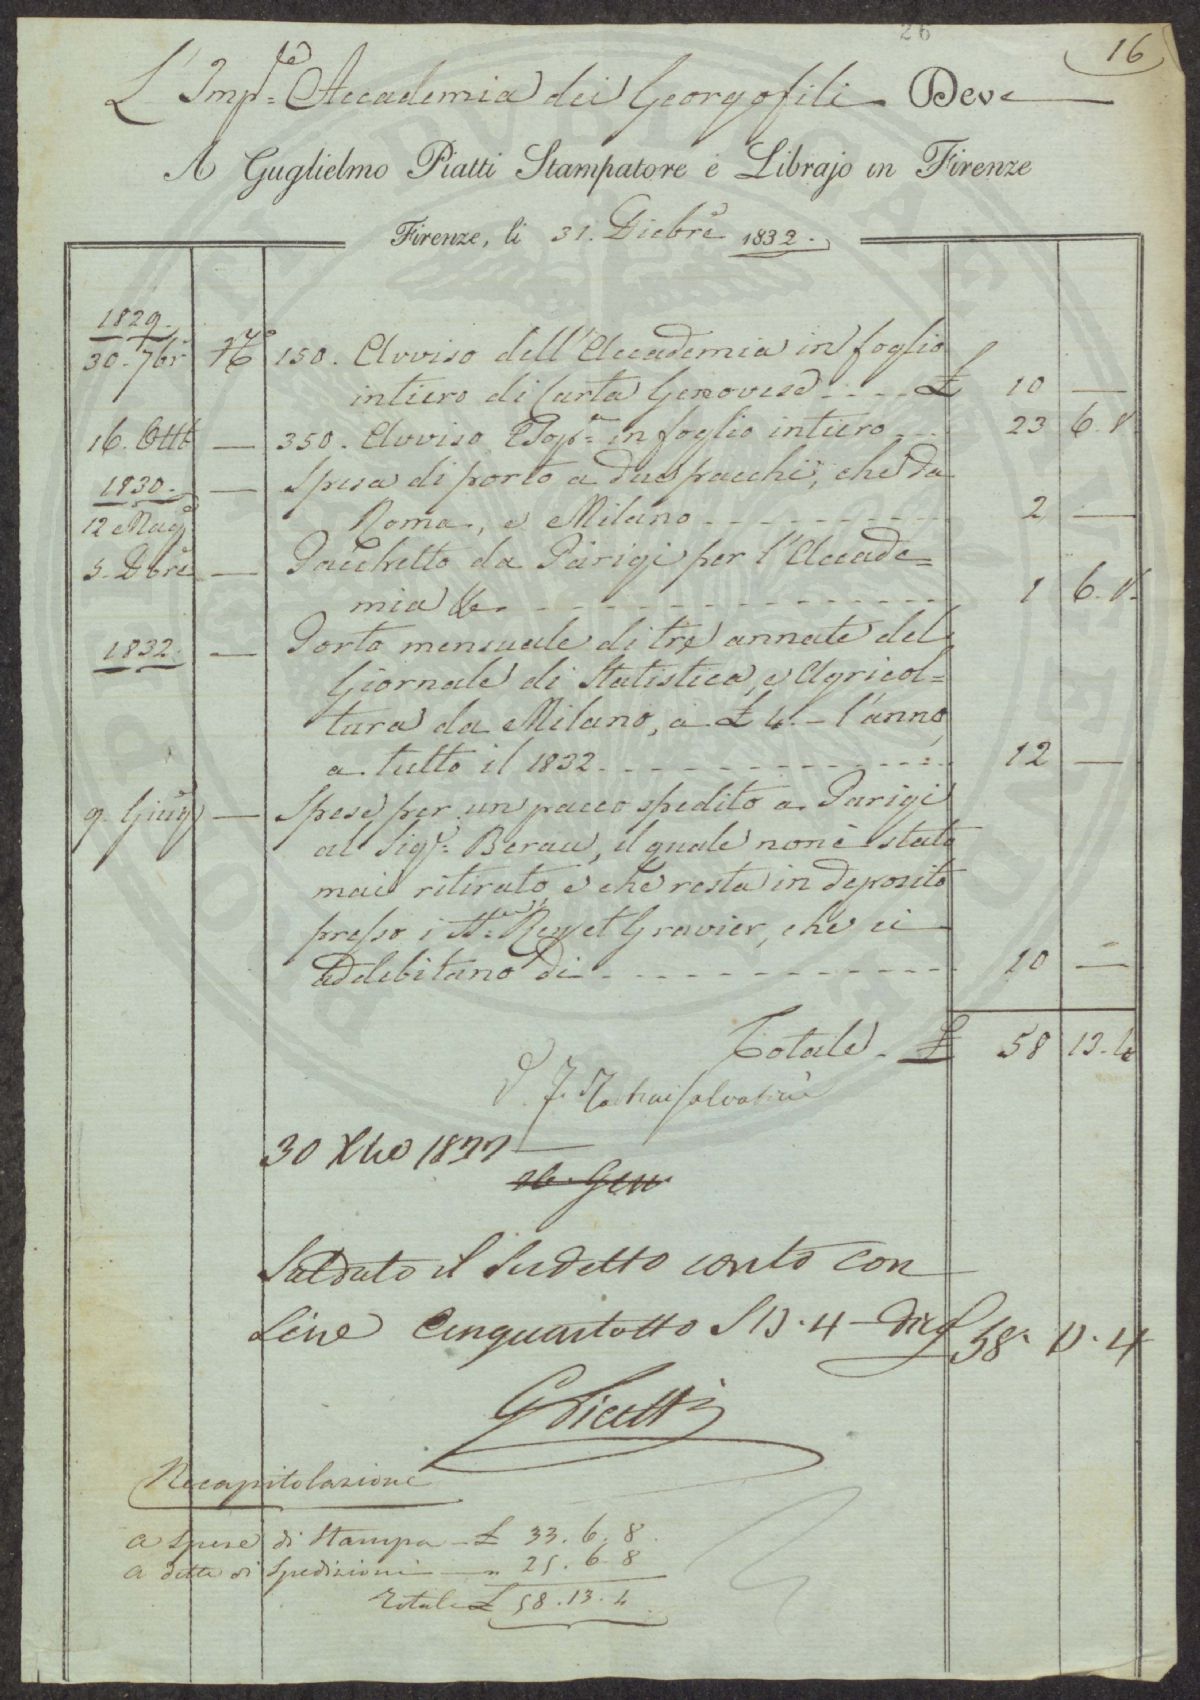 26
16
L'Imp.le Accademia dei Georgofili Deve
A Guglielmo Piatti Stampatore e Librajo in Firenze
Firenze, li 31. Dicbre 1832.
1829.
30. 7br N.o 150. Avviso dell'Accademia in foglio
intiero di Carta Genovese £ 10 —
16. Ottb — 350. Avviso in foglio intiero 23 6. 8.
1830. — Spesa di porto a due pacchi, che da
12 Mag.o Roma, e Milano 2 —
5. Dbre — Pacchetto da Parigi per l'Accade=
mia &c. 1 6. 8.
1832. — Porto mensuale di tre annate del
Giornale di Statistica, e Agricol=
tura da Milano, a £ 4. - l'anno,
a tutto il 1832 12 —
9. Giug — Spese per un pacco spedito a Parigi
al Sigr. , il quale non è stato
mai ritirato, e che resta in deposito
presso i Rey et Gravier, che ci
addebitano di 10 —
Totale £ 58 13. 4
30 Xbre 1832
26. Gen
Saldato il Sudetto conto con
Lire Cinquantotto S 13. 4 - dico £ 58. 13. 4
GPiatti
Recapitolazione
a Spese di Stampa - £ 33. 6. 8.
a dette di Spedizioni - " 25. 6. 8
Totale £ 58. 13. 4